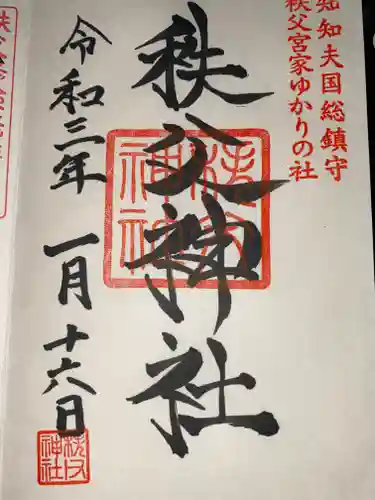 知知夫国総鎮守
秩父宮家ゆかりの社
秩父神社
秩父
神社
令和三年 一月十六日
秩父
神社